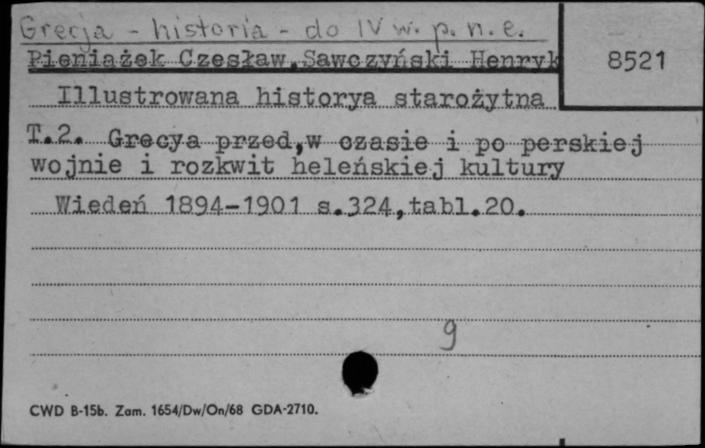 Grecja - historia - do IV w. p. n. e.
8521
Pieniażek Czesław,Sawczyński Henryk
Illustrowana historya starożytna
T.2. Grecya przed,w czasie i po perskiej
wojnie i rozkwit heleńskiej kultury
Wiedeń 1894-1901 s.324,tabl.20.
9
CWD B-15b. Zam. 1654/Dw/On/68 GDA-2710.